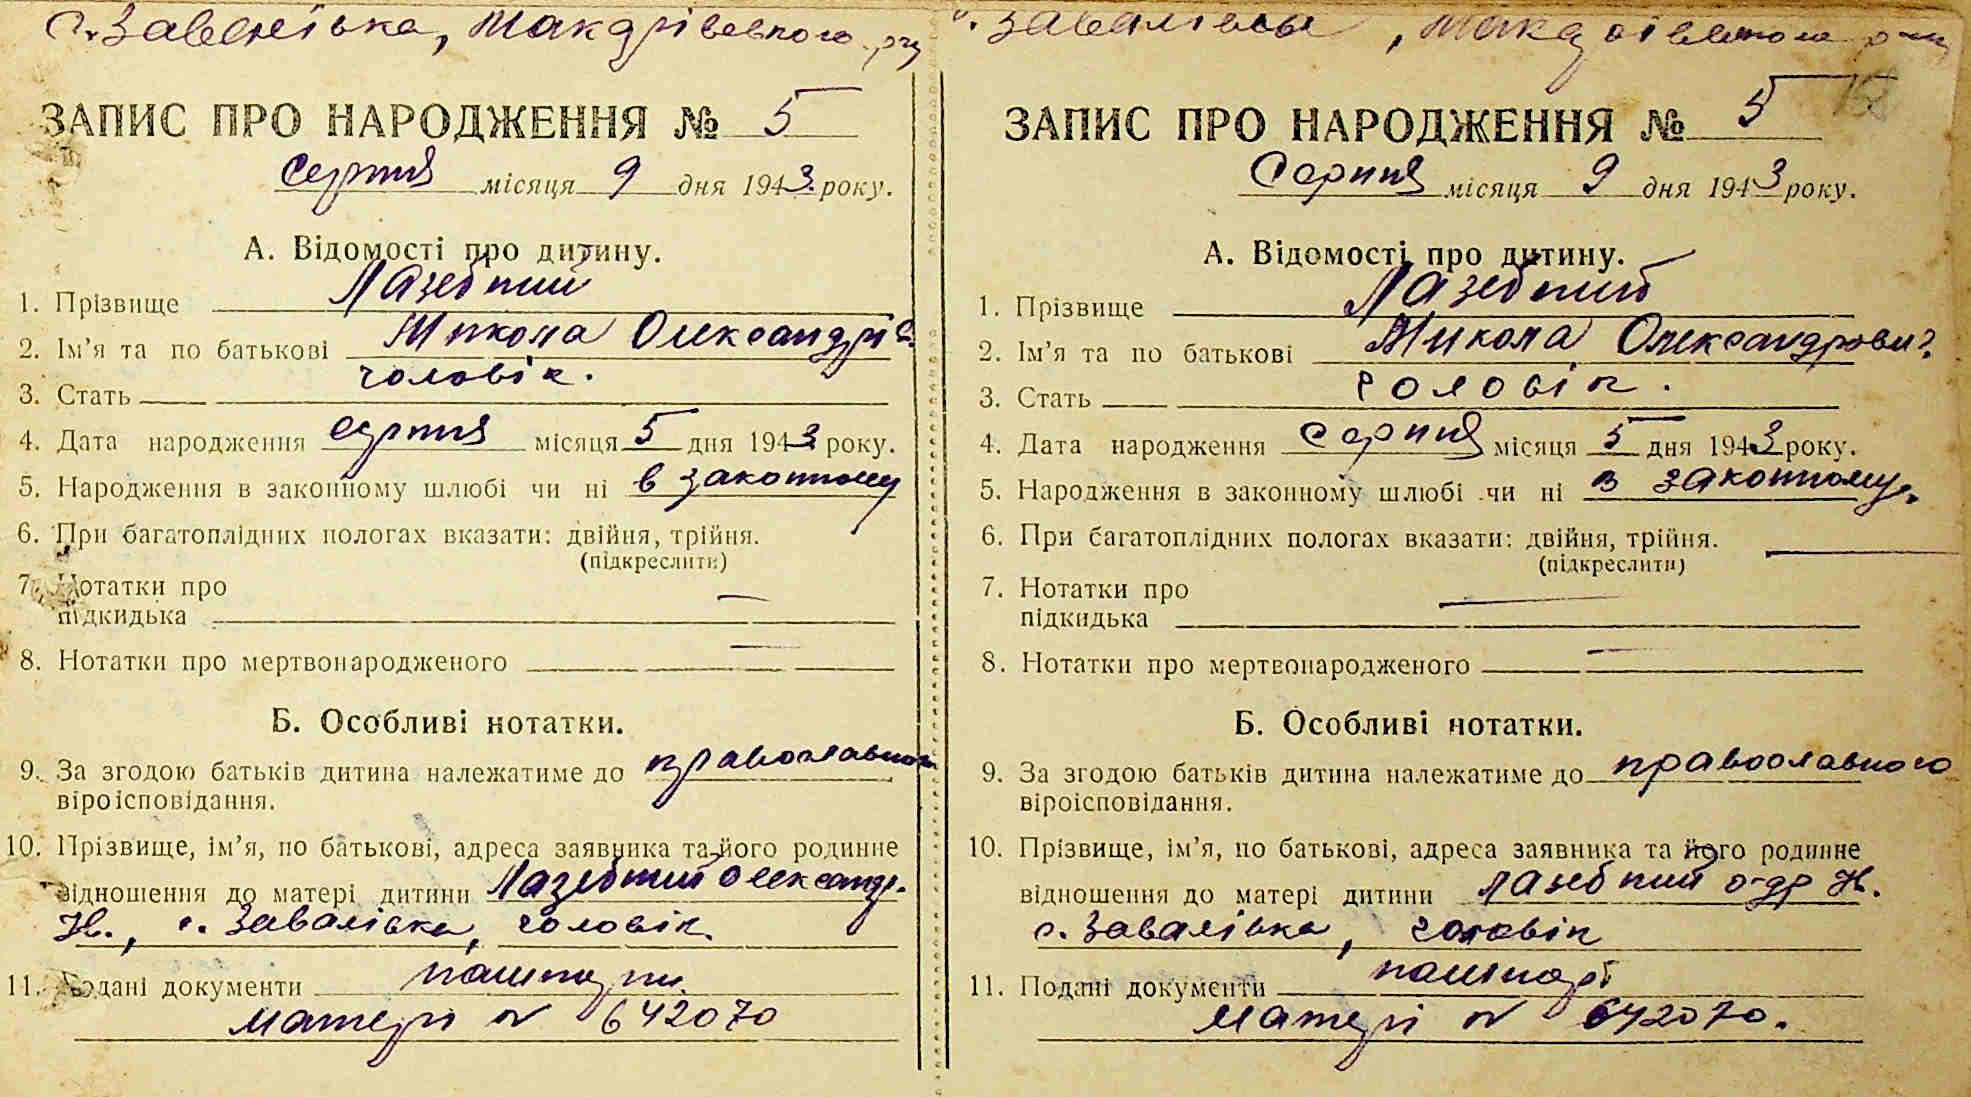 с. Завалівка, Макарівського р-ну
ЗАПИС ПРО НАРОДЖЕННЯ № 5
Серпня місяця 9 дня 1943 року.
А. Відомості про дитину.
1. Прізвище Лазебний
2. Ім’я та по батькові Микола Олександрів.
3. Стать чоловік.
4. Дата народження серпня місяця 5 дня 1943 року.
5. Народження в законному шлюбі чи ні в законному
6. При багатоплідних пологах вказати: двійня, трійня.
(підкреслити)
7. Нотатки про
підкидька —
8. Нотатки про мертвонародженого —
Б. Особливі нотатки.
9. За згодою батьків дитина належатиме до православного
віроісповідання.
10. Прізвище, ім’я, по батькові, адреса заявника та його родинне
відношення до матері дитини Лазебний Олександр.
Ів., с. Завалівка, чоловік.
11. Подані документи пашпорт
матері № 642070
с. Завалівка, Макарівського р-ну
ЗАПИС ПРО НАРОДЖЕННЯ № 5
Серпня місяця 9 дня 1943 року.
А. Відомості про дитину.
1. Прізвище Лазебний
2. Ім’я та по батькові Микола Олександрович.
3. Стать чоловік.
4. Дата народження Серпня місяця 5 дня 1943 року.
5. Народження в законному шлюбі чи ні в законному.
6. При багатоплідних пологах вказати: двійня, трійня. —
(підкреслити)
7. Нотатки про
підкидька —
8. Нотатки про мертвонародженого —
Б. Особливі нотатки.
9. За згодою батьків дитина належатиме до православного
віроісповідання.
10. Прізвище, ім’я, по батькові, адреса заявника та його родинне
відношення до матері дитини Лазебний О-др
с. Завалівка, чоловік
11. Подані документи пашпорт
матері № 642070.